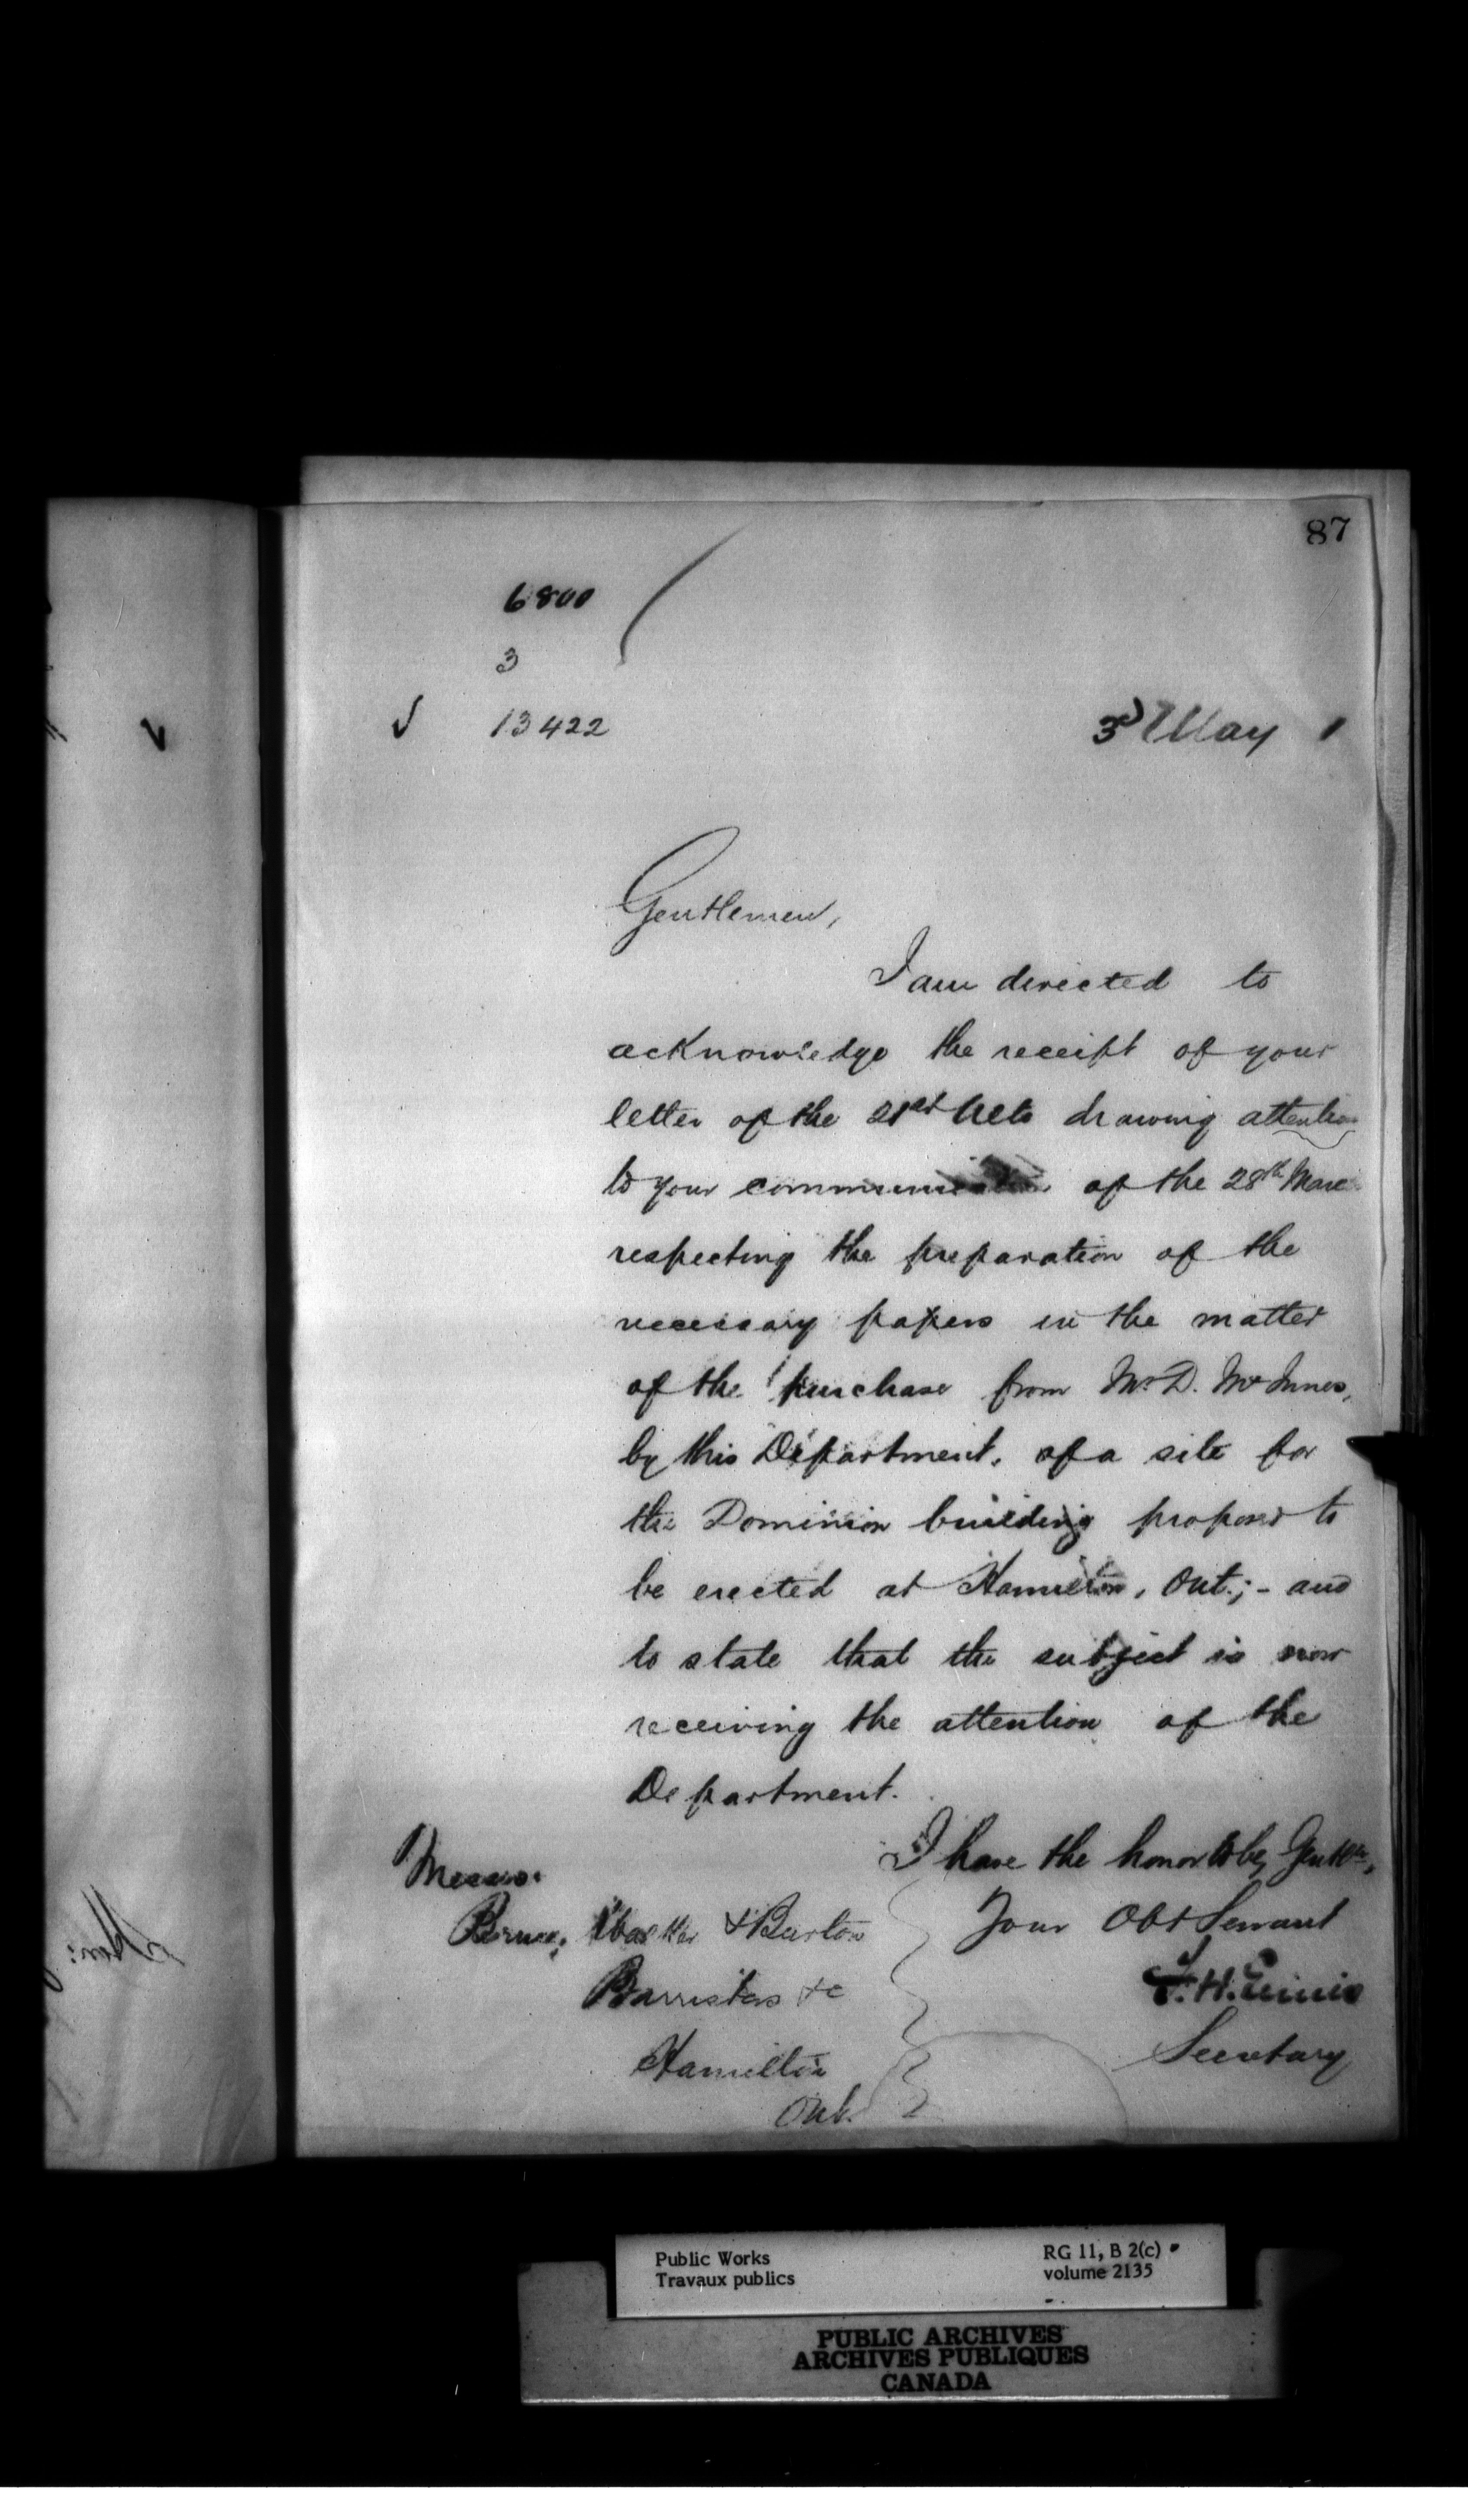 87
6800
3
13422
3d May 1
Gentlemen,
I am directed to
acknowledge the receipt of your
letter of the 21st ulto drawing attention
to your communication of the 28th Marc
respecting the preparation of the
necessary papers in the matter
of the purchase from Mr D. McInnes,
by this Department, of a site for
the Dominion building proposed to
be erected at Hamilton, Ont.; - and
to state that the subject is now
receiving the attention of the
Department.
I have the honor to be, Gentln,
Your Obt Servant
F. H. Ennis
Secretary
Messrs.
Bruce, Walker & Burton
Barristers &c
Hamilton
Ont.
Public Works
Travaux publics
RG 11, B 2(c)
volume 2135
PUBLIC ARCHIVES
ARCHIVES PUBLIQUES
CANADA